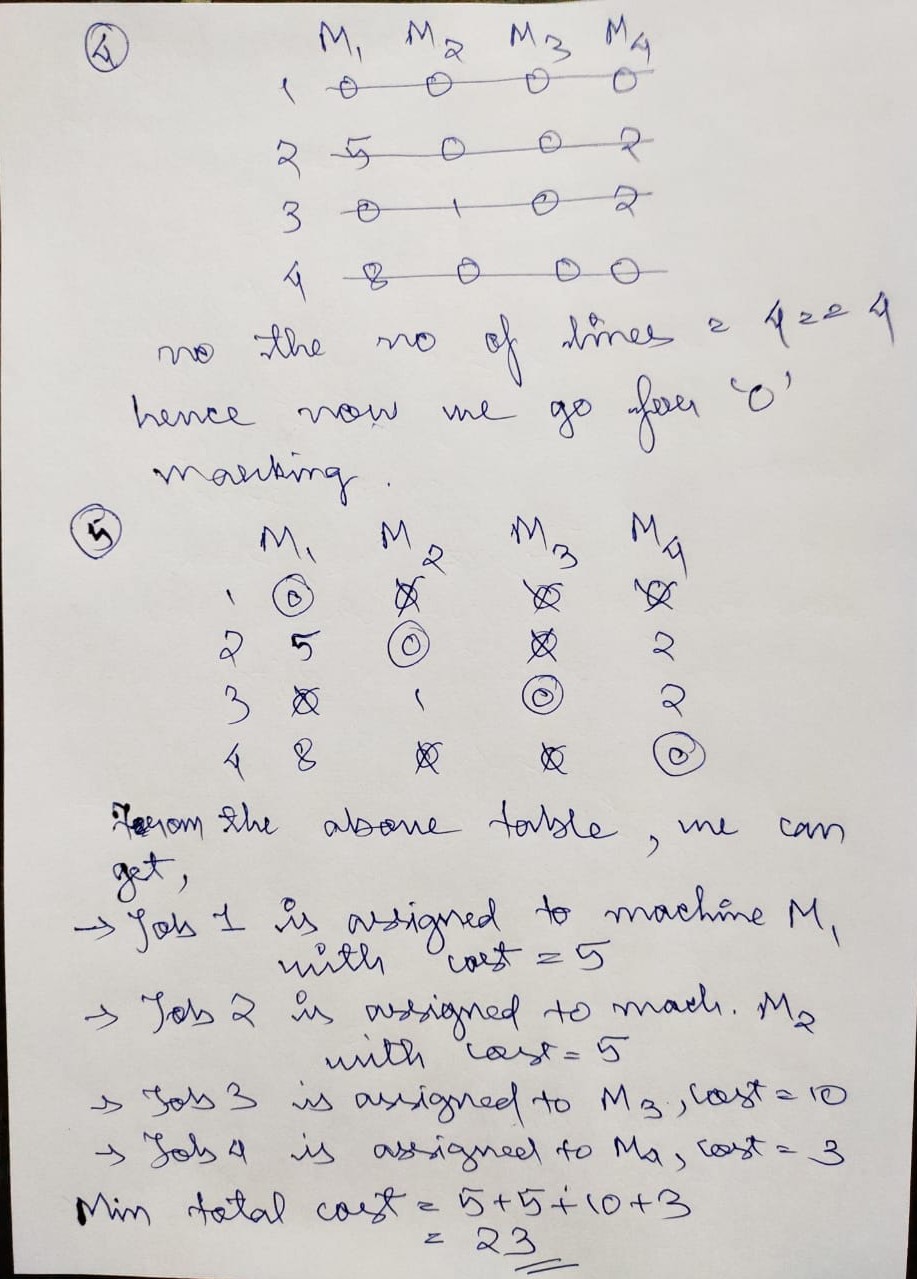 4
M1 M2 M3 M4
1 0 0 0 0
2 5 0 0 2
3 0 1 0 2
4 8 0 0 0
no the no of lines = 4 == 4
hence now we go for '0'
marking.
5
M1 M2 M3 M4
1 0 0 0 0
2 5 0 0 2
3 0 1 0 2
4 8 0 0 0
From the above table, we can
get,
→ Job 1 is assigned to machine M1
with cost = 5
→ Job 2 is assigned to mach. M2
with cost = 5
→ Job 3 is assigned to M3, cost = 10
→ Job 4 is assigned to M4, cost = 3
Min total cost = 5+5+10+3
= 23